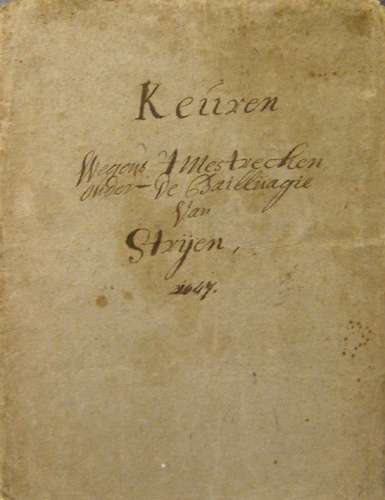 Keuren
Wegens 't Mestrecken
onder de Bailluagie
Van
Strijen,
1647.